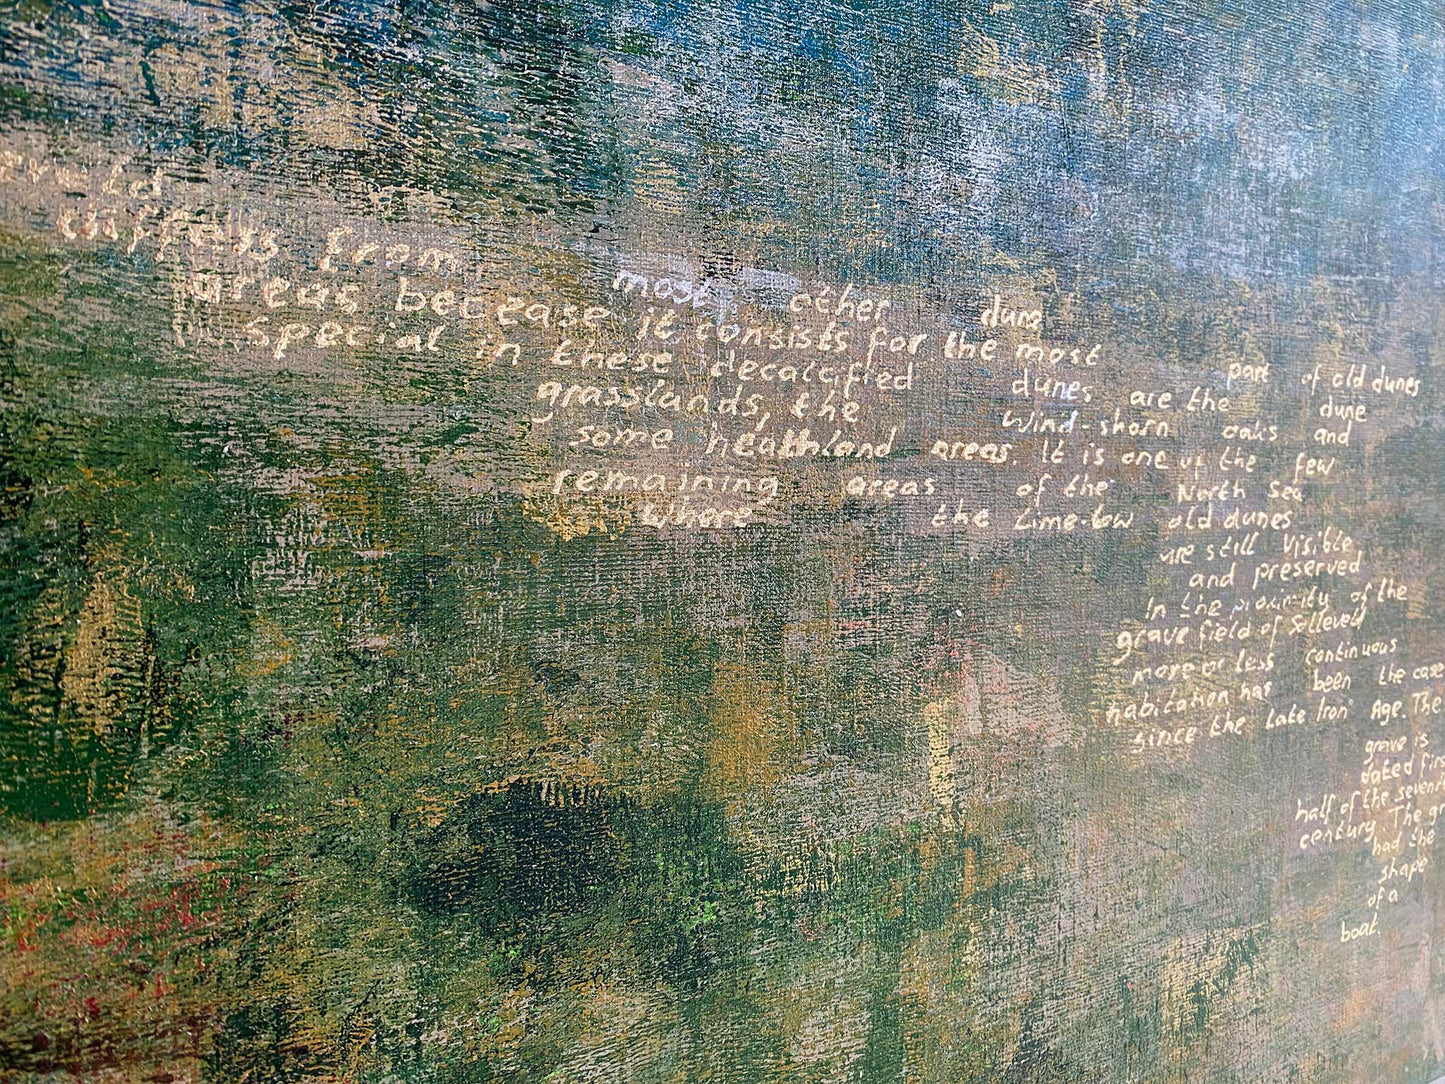 eveld
differs from most other dune
areas because it consists for the most part of old dunes
special in these decalcified dunes are the dune
grasslands, the Wind-shorn oaks and
some heathland areas. It is one of the few
remaining areas of the North Sea
Where the Lime-low old dunes
are still visible
and preserved
In the proximity of the
grave field of Solleveld
more or less continuous
habitation has been the case
since the late Iron Age. The
grave is
dated firs
half of the sevent
century. The gr
had the
shape
of a
boat.